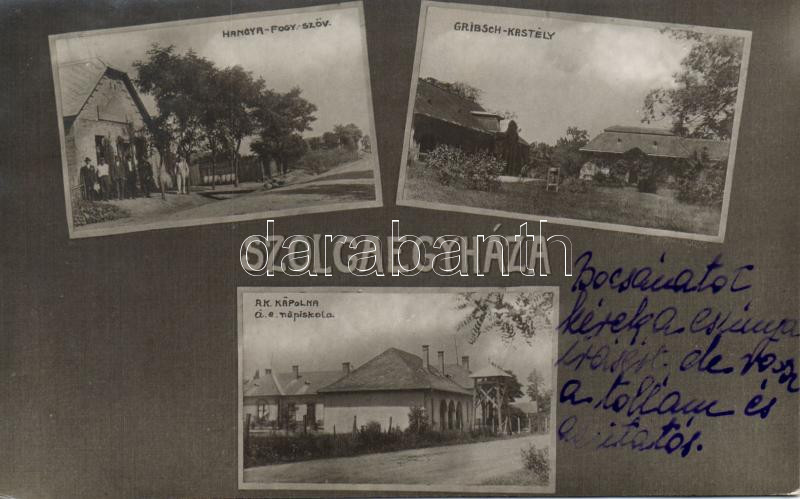 HANGYA-FOGY. SZÖV.
GRIBSCH-KASTÉLY
SZOLGAEGYHÁZA
darabanth
R.K. KÁPOLNA
á. e. népiskola.
Bocsánatot
kérek a csúnya
írásért. de rossz
a tollam és